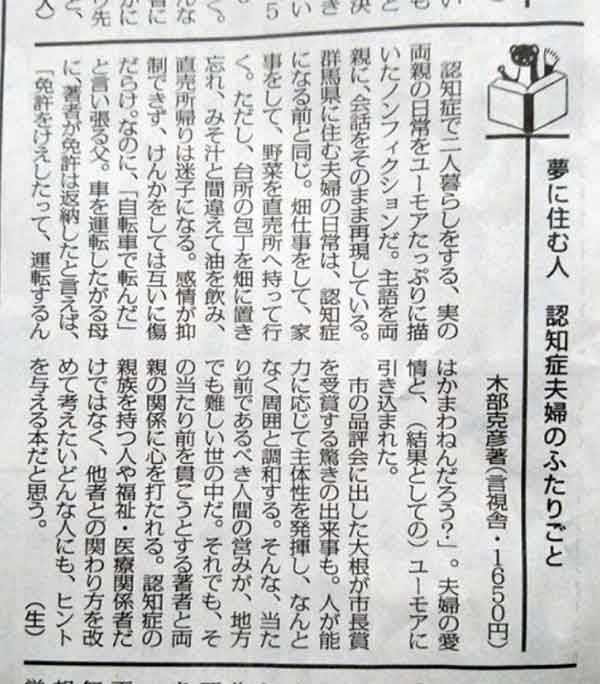 夢に住む人　認知症夫婦のふたりごと
木部克彦著（言視舎・1650円）
認知症で二人暮らしをする、実の
両親の日常をユーモアたっぷりに描
いたノンフィクションだ。主語を両
親に、会話をそのまま再現している。
群馬県に住む夫婦の日常は、認知症
になる前と同じ。畑仕事をして、家
事をして、野菜を直売所へ持って行
く。ただし、台所の包丁を畑に置き
忘れ、みそ汁と間違えて油を飲み、
直売所帰りは迷子になる。感情が抑
制できず、けんかをしては互いに傷
だらけ。なのに、「自転車で転んだ」
と言い張る父。車を運転したがる母
に、著者が免許は返納したと言えば、
「免許をけえしたって、運転するん
はかまわねんだろう？」。夫婦の愛
情と、（結果としての）ユーモアに
引き込まれた。
市の品評会に出した大根が市長賞
を受賞する驚きの出来事も。人が能
力に応じて主体性を発揮し、なんと
なく周囲と調和する。そんな、当た
り前であるべき人間の営みが、地方
でも難しい世の中だ。それでも、そ
の当たり前を貫こうとする著者と両
親の関係に心を打たれる。認知症の
親族を持つ人や福祉・医療関係者だ
けではなく、他者との関わり方を改
めて考えたいどんな人にも、ヒント
を与える本だと思う。　（生）